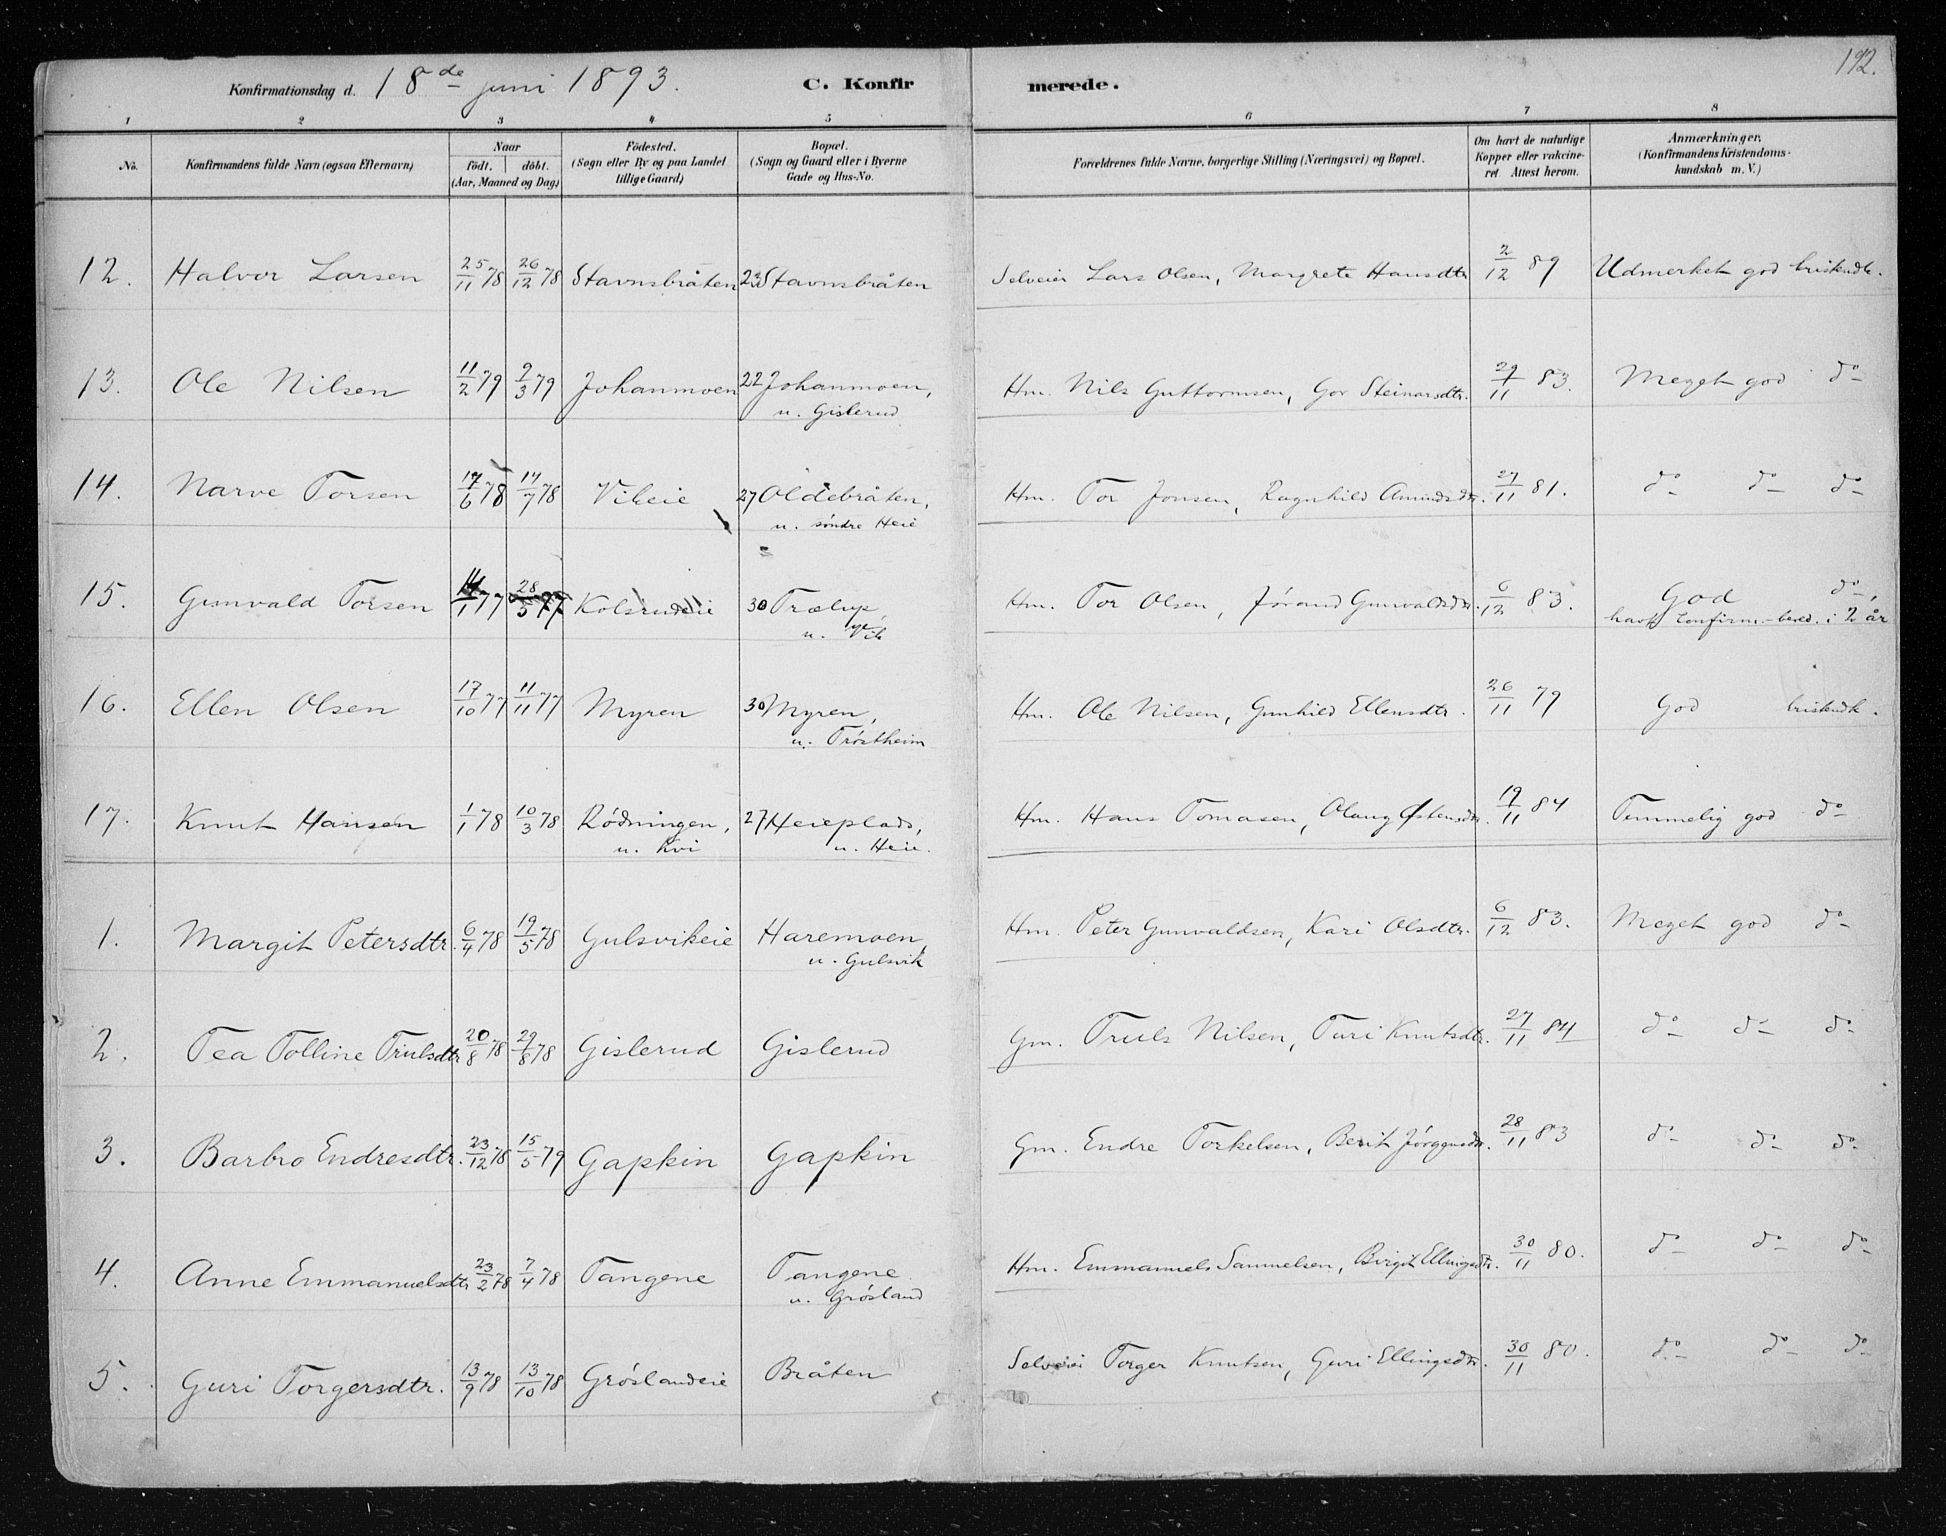 192.
Konfirmationsdag d. 18de juni 1893. C. Konfirmerede.
1 2 3 4 5 6 7 8
No. Konfirmandens fulde Navn (ogsaa Efternavn) Naar født. døbt. (Aar, Maaned og Dag) Fødested. (Sogn eller By og paa Landet tillige Gaard) Bopæl. (Sogn og Gaard eller i Byerne Gade og Hus-No. Forældrenes fulde Navne, borgerlige Stilling (Næringsvei) og Bopæl. Om havt de naturlige Kopper eller vakcineret Attest herom. Anmærkninger. (Konfirmandens Kristendomskundskab m. V.)
12. Halvor Larsen 25/11 78 26/12 78 Stavnsbråten 23 Stavnsbråten Selveier Lars Olsen, Margrete Hansdtr 2/12 89 Udmerket god kristndk.
13. Ole Nilsen 11/2 79 9/3 79 Johanmoen 22 Johanmoen, Hm. Nils Guttormsen, Gor Steinarsdtr. 29/11 83. Meget god do
u. Gislerud
14. Narve Torsen 17/6 78 14/7 78 Vikeie 27 Oldebråten, Hm. Tor Jonsen, Ragnhild Amundsdtr. 27/11 81. do do do
u. søndre Heie
15. Gunvald Torsen 14/1 77 28/5 77 Kolsrudeie 30 Trælup, Hm. Tor Olsen, Jørand Gunvaldsdtr. 6/12 83. God do,
u. Vik havt Confirm.-bered. i 2 år
16. Ellen Olsen 17/10 77 11/11 77 Myren 30 Myren, Hm. Ole Nilsen, Gunhild Ellensdtr. 26/11 79 God kristndk.
u. Trøstheim
17. Knut Hansen 1/1 78 10/3 78 Rødningen, 27 Heieplads, Hm. Hans Tomasen, Olaug Østensdtr. 19/11 84 Temmelig god do
u. Kvi u. Heie.
1. Margit Petersdtr. 6/4 78 19/5 78 Gulsvikeie Haremoen, Hm. Peter Gunvaldsen, Kari Olsdtr. 6/12 83. Meget god do
u. Gulsvik
2. Tea Tolline Trulsdtr 20/8 78 29/8 78 Gislerud Gislerud Gm. Truls Nilsen, Turi Knutsdtr. 27/11 84 do do do
3. Barbro Endresdtr. 23/12 78 15/5 79 Gapkin Gapkin Gm. Endre Torkelsen, Berit Jørgensdtr. 28/11 83 do do do
4. Anne Emmanuelsdtr 23/2 78 7/4 78 Tangene Tangene Hm. Emmanuels Samuelsen, Birgit Ellingsdtr. 30/11 80. do do do
u. Grøsland
5. Guri Torgersdtr. 13/9 78 13/10 78 Grøslandeie Bråten Selveier Torger Knutsen, Guri Ellingsdtr. 30/11 80. do do do